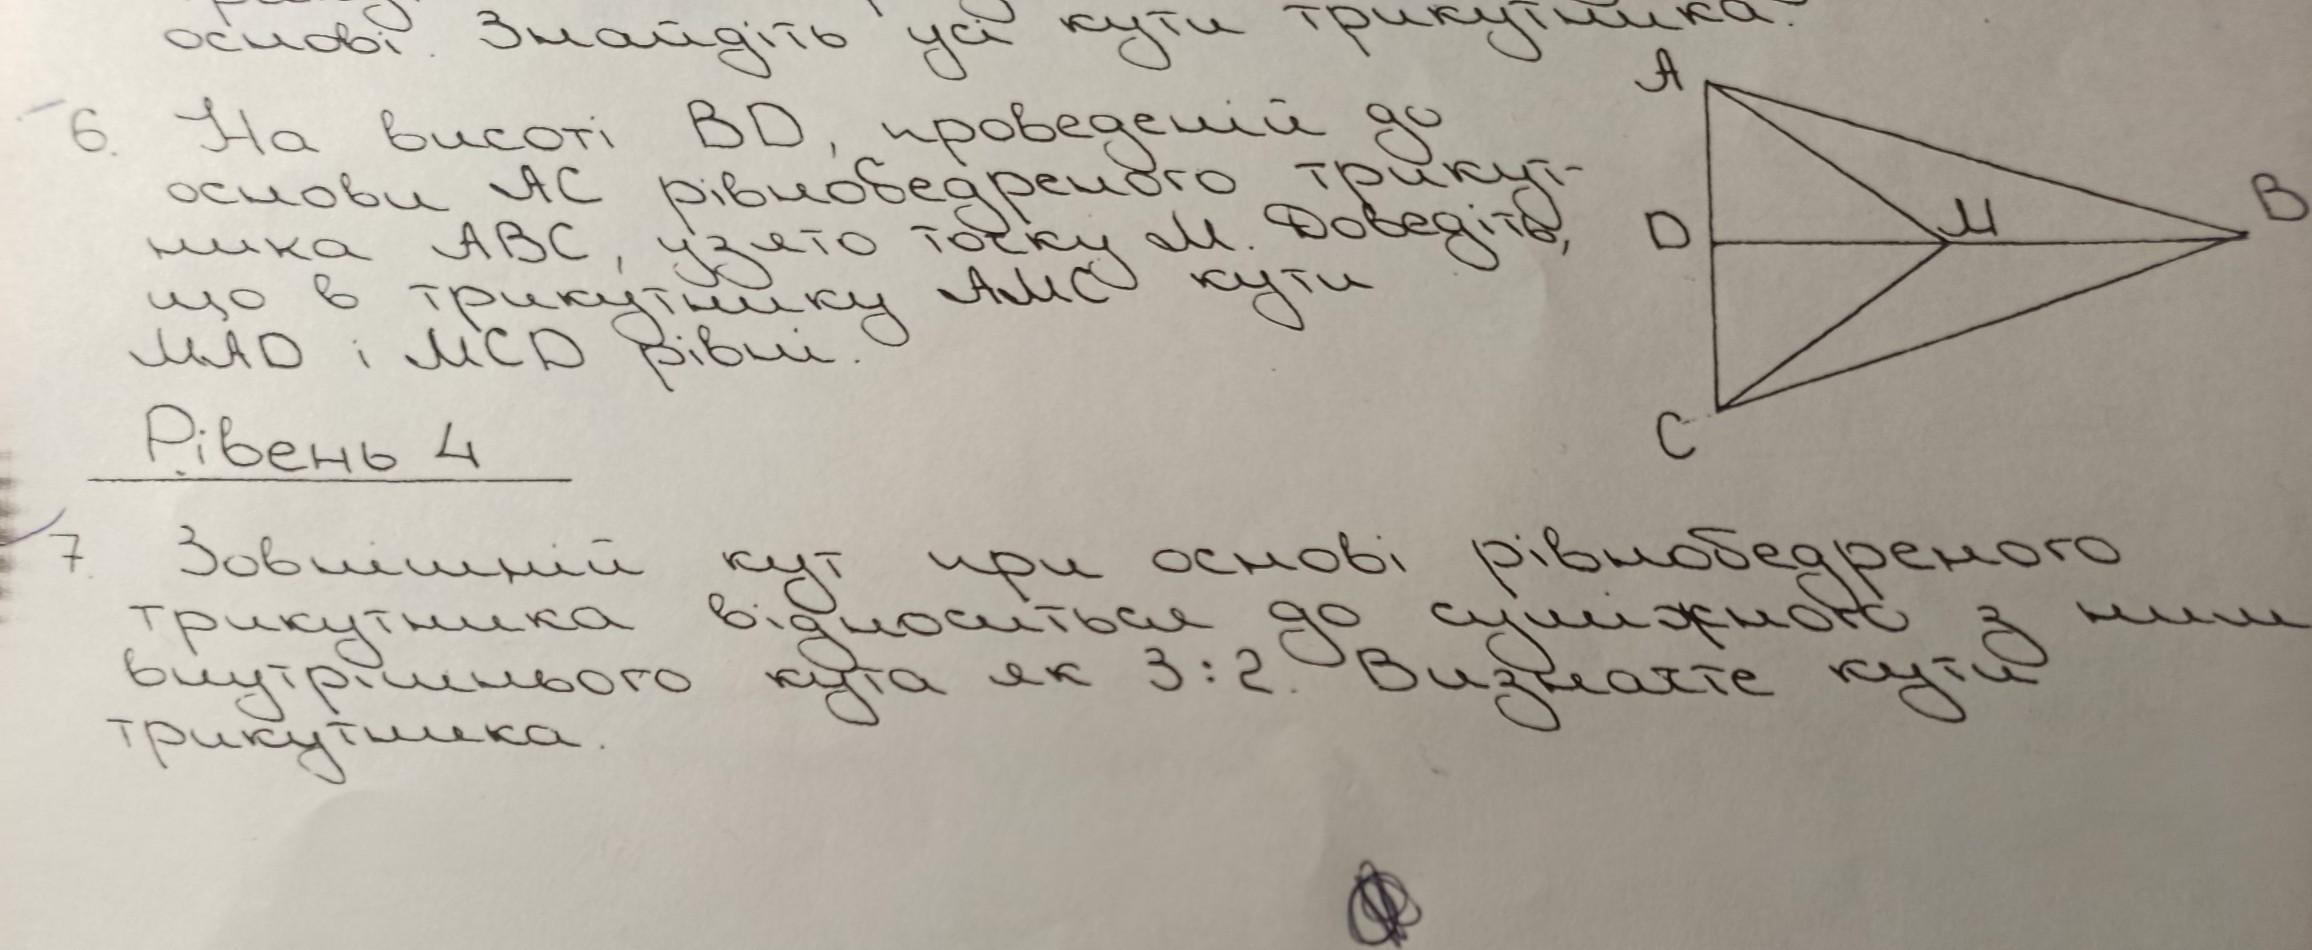 основі. Знайдіть усі кути трикутника.
6. На висоті BD, проведеній до
основи AC рівнобедреного трикут-
ника ABC, узято точку M. Доведіть,
що в трикутнику AMC кути
MAD і MCD рівні.
A
D
M
B
C
Рівень 4
7. Зовнішній кут при основі рівнобедреного
трикутника відноситься до суміжного з ним
внутрішнього кута як 3:2. Визначте кути
трикутника.